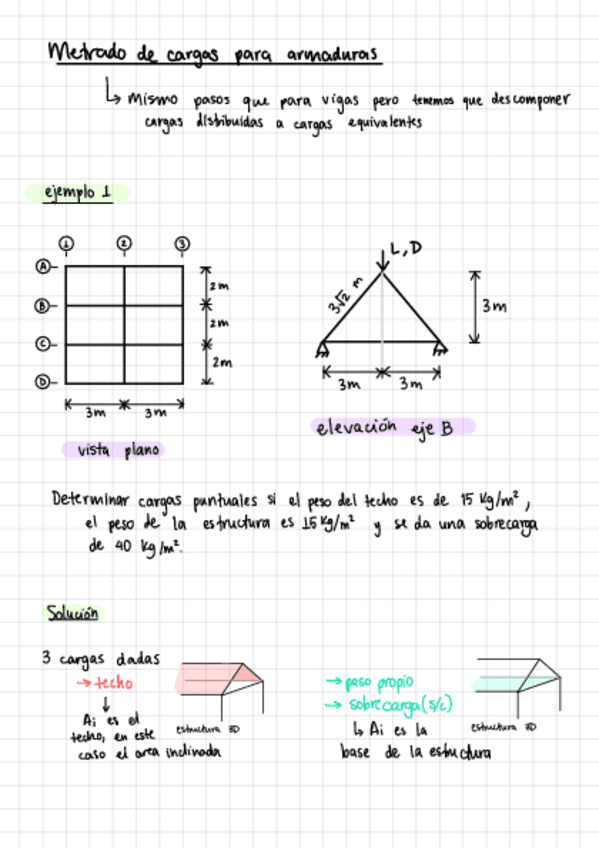 Metrado de cargas para armaduras
↳ mismo pasos que para vigas pero tenemos que descomponer
cargas distribuidas a cargas equivalentes
ejemplo 1
1 2 3
A
B
C
D
2m
2m
2m
3m 3m
vista plano
L, D
3√2 m
3m
3m 3m
elevación eje B
Determinar cargas puntuales si el peso del techo es de 15 kg/m²,
el peso de la estructura es 15 kg/m² y se da una sobrecarga
de 40 kg/m².
Solución
3 cargas dadas
→ techo
↓
Ai es el
techo, en este
caso el area inclinada
estructura 3D
→ peso propio
→ sobrecarga (s/c)
↳ Ai es la
base de la estructura
estructura 3D